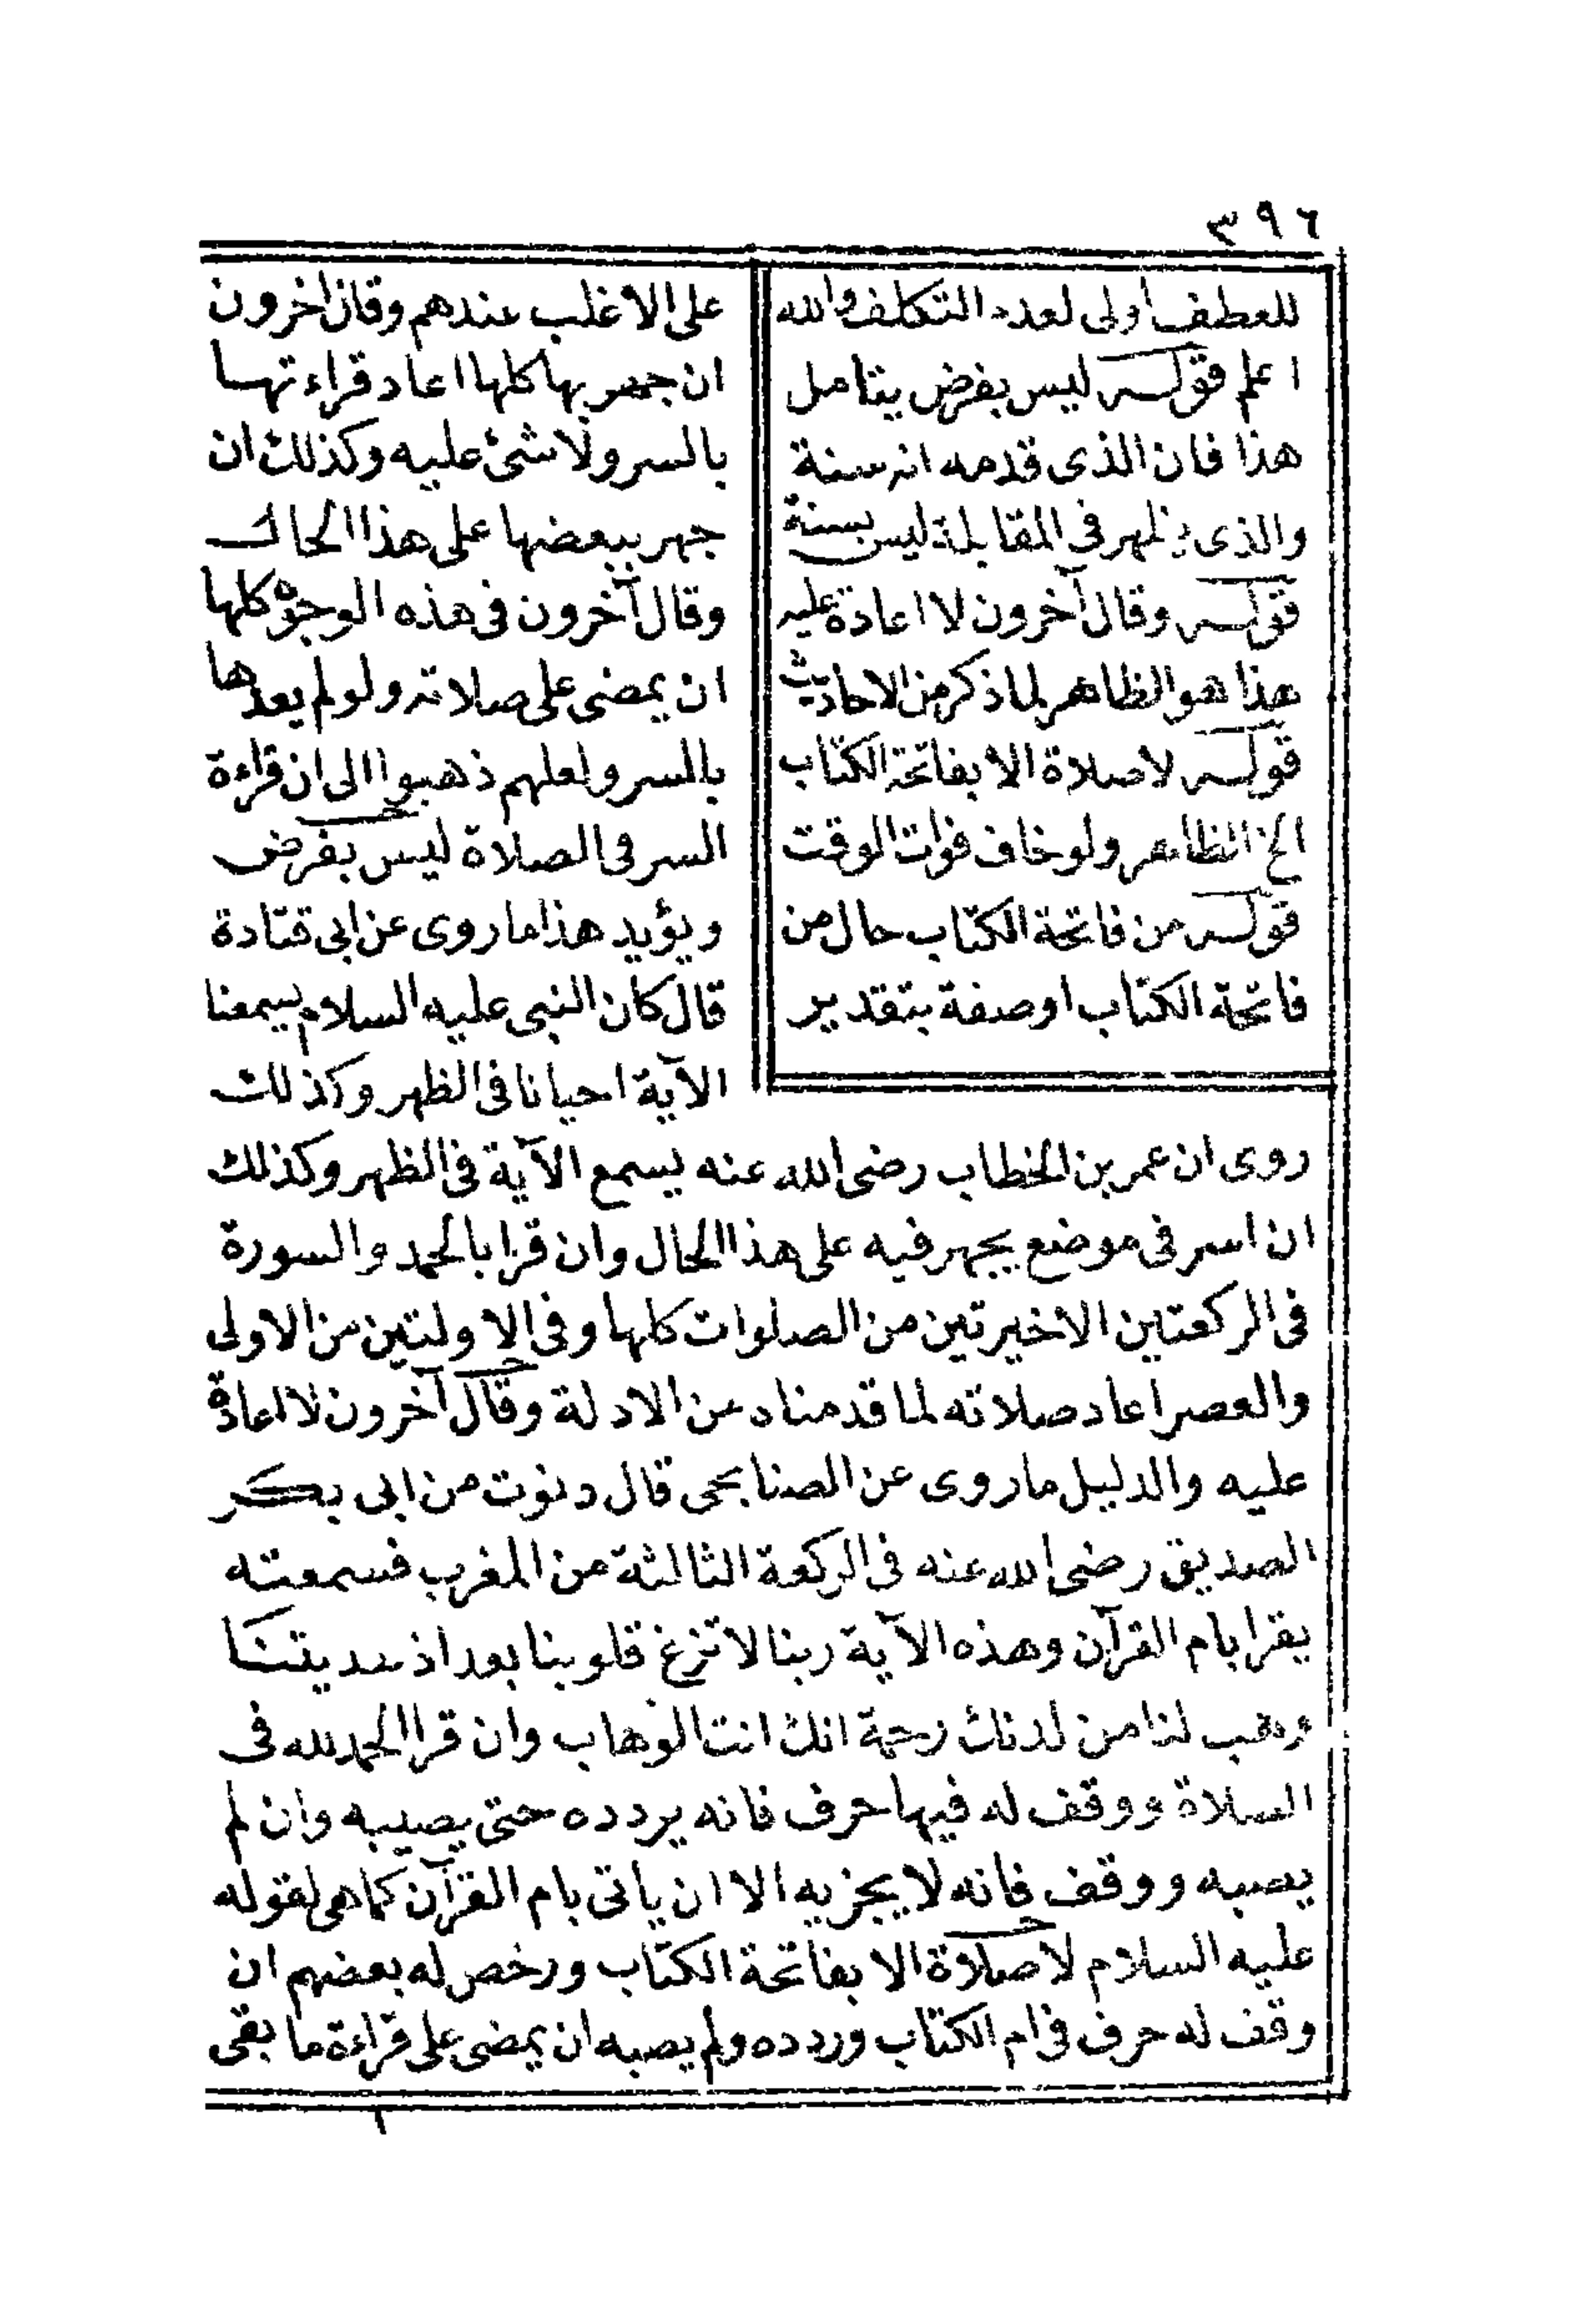 ٣٩٦
للعطف أولى لعدم التكلف والله
اعلم قوله ليس بفرض يتامل
هذا فان الذى قدمه انه سنة
والذى يظهر فى المقابلة ليس بسنة
قوله وقال آخرون لا اعادة عليه
هذا هو الظاهر لما ذكر من الاحاديث
قوله لا صلاة الا بفاتحة الكتاب
الخ الظاهر ولو خاف فوات الوقت
قوله من فاتحة الكتاب حال من
فاتحة الكتاب او صفة بتقدير
على الاغلب عندهم وقال اخرون
ان جهر بها كلها اعاد قراءتها
بالسر ولا شئ عليه وكذلك ان
جهر ببعضها على هذا الحال
وقال آخرون فى هذه الوجوه كلها
ان يمضى على صلاته ولو لم يعدها
بالسر ولعلهم ذهبوا الى ان قراءة
السر فى الصلاة ليس بفرض
ويؤيد هذا ما روى عن ابى قتادة
قال كان النبى عليه السلام يسمعنا
الآية احيانا فى الظهر وكذلك
روى ان عمر بن الخطاب رضى الله عنه يسمع الآية فى الظهر وكذلك
ان اسر فى موضع يجهر فيه على هذا الحال وان قرا بالحمد والسورة
فى الركعتين الاخيرتين من الصلوات كلها وفى الاولتين من الاولى
والعصر اعاد صلاته لما قدمناه من الادلة وقال آخرون لا اعادة
عليه والدليل ما روى عن الصنابحى قال دنوت من ابى بكر
الصديق رضى الله عنه فى الركعة الثالثة من المغرب فسمعته
يقرا بام القرآن وهذه الآية ربنا لا تزغ قلوبنا بعد اذ هديتنا
وهب لنا من لدنك رحمة انك انت الوهاب وان قرا الحمد لله فى
الصلاة ووقف له فيها حرف فانه يردده حتى يصيبه وان لم
يصبه ووقف فانه لا يجزيه الا ان ياتى بام القرآن كما هى لقوله
عليه السلام لا صلاة الا بفاتحة الكتاب ورخص له بعضهم ان
وقف له حرف فى ام الكتاب وردده ولم يصبه ان يمضى على قراءة ما بقى